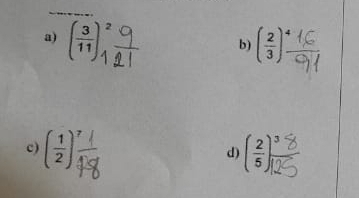 a) (3/11)² 9/121
b) (2/3)⁴ 16/91
c) (1/2)⁷ 1/128
d) (2/5)³ 8/125